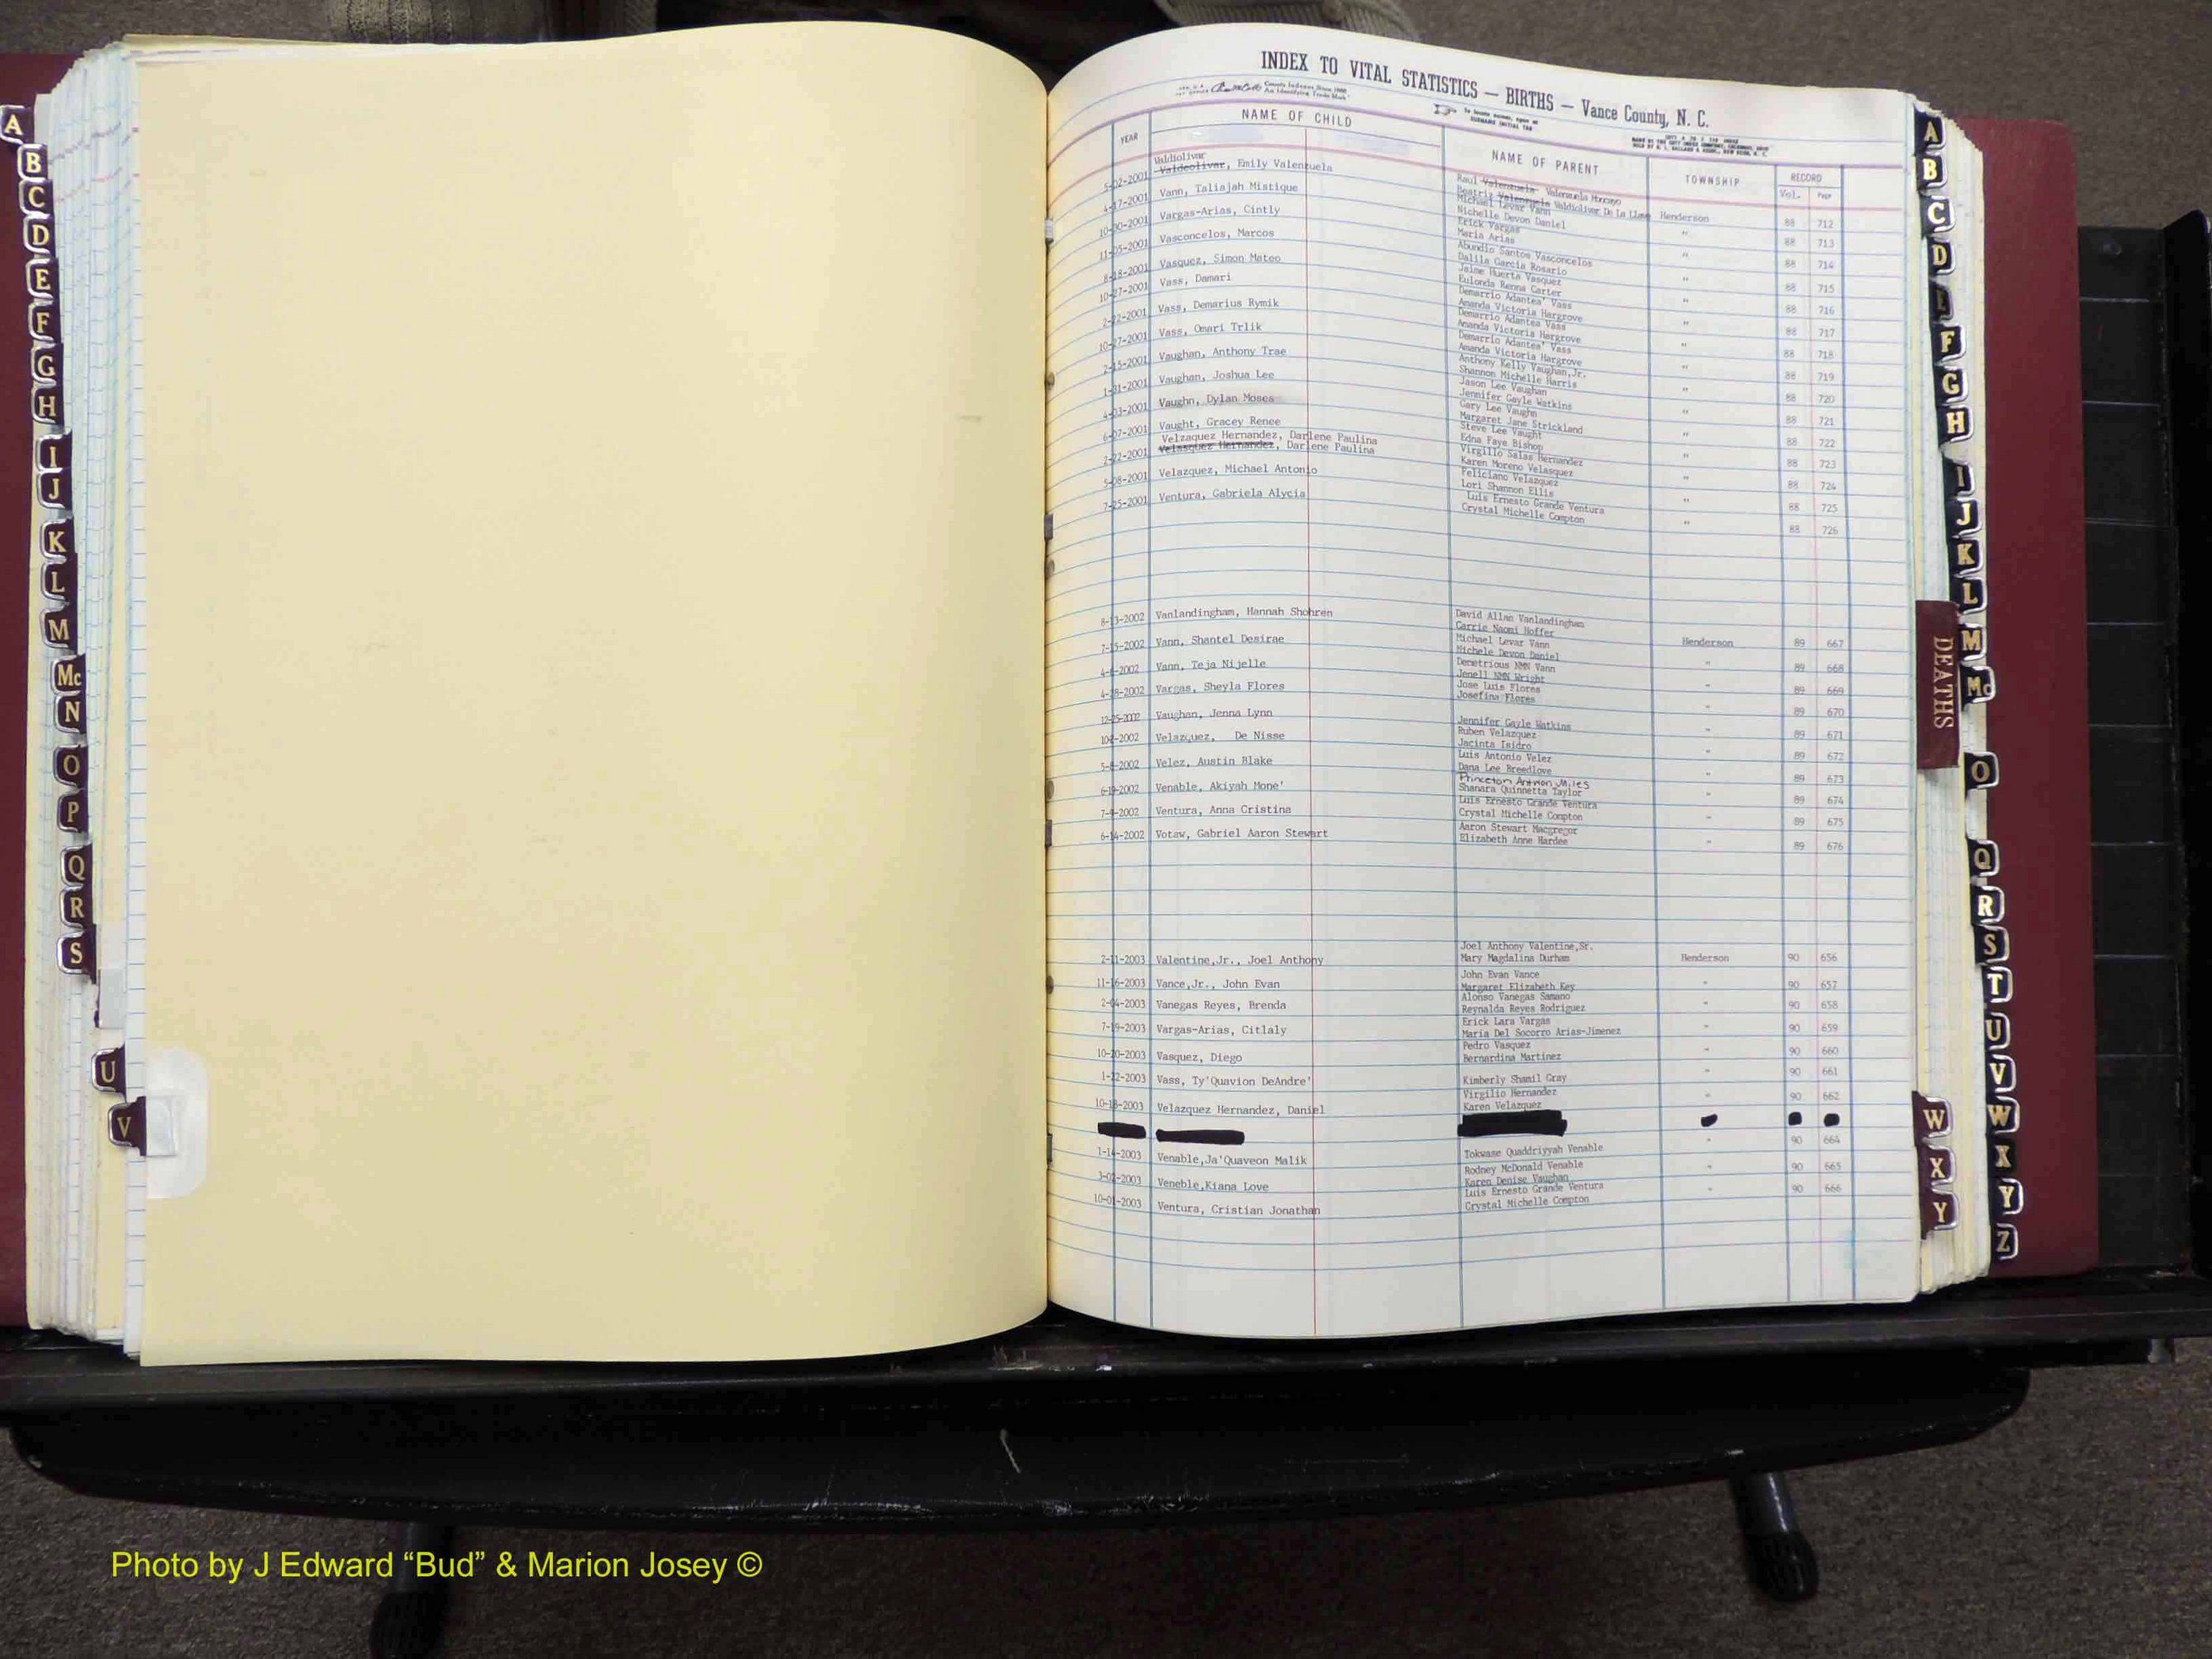 INDEX TO VITAL STATISTICS — BIRTHS — Vance County, N. C.
County Indexes Since 1888
An Identifying Trade Mark
To locate names, open at
SURNAME INITIAL TAB
YEAR NAME OF CHILD NAME OF PARENT TOWNSHIP RECORD
Vol. Page
Valdiolivar
5-02-2001 Valdeolivar, Emily Valenzuela Raul Valenzuela Valenzuela Moncayo Henderson 88 712
Beatriz Valenzuela Valdiolivar De La Llave
4-17-2001 Vann, Taliajah Mistique Michael Levar Vann " 88 713
Nichelle Devon Daniel
Vargas-Arias, Cintly Erick Vargas " 88 714
Maria Arias
11-05-2001 Vasconcelos, Marcos Abundio Santos Vasconcelos " 88 715
Dalila Garcia Rosario
8-18-2001 Vasquez, Simon Mateo Jaime Huerta Vasquez " 88 716
Eulonda Renna Carter
10-27-2001 Vass, Damari Demarrio Adantea' Vass " 88 717
Amanda Victoria Hargrove
2-22-2001 Vass, Demarius Rymik Demarrio Adantea Vass " 88 718
Amanda Victoria Hargrove
10-27-2001 Vass, Omari Trlik Demarrio Adantea' Vass " 88 719
Amanda Victoria Hargrove
2-15-2001 Vaughan, Anthony Trae Anthony Kelly Vaughan,Jr. " 88 720
Shannon Michelle Harris
1-31-2001 Vaughan, Joshua Lee Jason Lee Vaughan " 88 721
Jennifer Gayle Watkins
4-03-2001 Vaughn, Dylan Moses Gary Lee Vaughn " 88 722
Margaret Jane Strickland
6-07-2001 Vaught, Gracey Renee Steve Lee Vaught " 88 723
Edna Faye Bishop
Velzaquez Hernandez, Darlene Paulina
2-22-2001 Velasquez Hernandez, Darlene Paulina Virgilio Salas Hernandez " 88 724
Karen Moreno Velasquez
5-08-2001 Velazquez, Michael Antonio Feliciano Velazquez " 88 725
Lori Shannon Ellis
7-25-2001 Ventura, Gabriela Alycia Luis Ernesto Grande Ventura " 88 726
Crystal Michelle Compton
8-13-2002 Vanlandingham, Hannah Shohren David Allan Vanlandingham Henderson 89 667
Carrie Naomi Hoffer
7-15-2002 Vann, Shantel Desirae Michael Levar Vann " 89 668
Michele Devon Daniel
4-6-2002 Vann, Teja Nijelle Demetrious NMN Vann " 89 669
Jenell NMN Wright
4-28-2002 Vargas, Sheyla Flores Jose Luis Flores " 89 670
Josefina Flores
12-25-2002 Vaughan, Jenna Lynn Jennifer Gayle Watkins " 89 671
10-2-2002 Velazquez, De Nisse Ruben Velazquez " 89 672
Jacinta Isidro
5-8-2002 Velez, Austin Blake Luis Antonio Velez " 89 673
Dana Lee Breedlove
6-19-2002 Venable, Akiyah Mone' Princeton Antrion Miles " 89 674
Shanara Quinnetta Taylor
7-9-2002 Ventura, Anna Cristina Luis Ernesto Grande Ventura " 89 675
Crystal Michelle Compton
6-14-2002 Votaw, Gabriel Aaron Stewart Aaron Stewart Macgregor " 89 676
Elizabeth Anne Hardee
Joel Anthony Valentine,Sr.
2-11-2003 Valentine,Jr., Joel Anthony Mary Magdalina Durham Henderson 90 656
John Evan Vance
11-16-2003 Vance,Jr., John Evan Margaret Elizabeth Key " 90 657
Alonso Vanegas Samano
2-04-2003 Vanegas Reyes, Brenda Reynalda Reyes Rodriguez " 90 658
Erick Lara Vargas
7-19-2003 Vargas-Arias, Citlaly Maria Del Socorro Arias-Jimenez " 90 659
Pedro Vasquez
10-20-2003 Vasquez, Diego Bernardina Martinez " 90 660
1-22-2003 Vass, Ty'Quavion DeAndre' Kimberly Shamil Gray " 90 661
Virgilio Hernandez
10-18-2003 Velazquez Hernandez, Daniel Karen Velazquez " 90 662
1-14-2003 Venable,Ja'Quaveon Malik Tokwase Quaddriyyah Venable " 90 664
Rodney McDonald Venable
3-02-2003 Veneble,Kiana Love Karen Denise Vaughan " 90 665
Luis Ernesto Grande Ventura
10-01-2003 Ventura, Cristian Jonathan Crystal Michelle Compton " 90 666
A
B
C
D
E
F
G
H
I
J
K
L
M
Mc
N
O
P
Q
R
S
U
V
A
B
C
D
E
F
G
H
I
J
K
L
M
Mc
DEATHS
O
Q
R
S
T
U
V
W
X
Y
Z
W
X
Y
Photo by J Edward “Bud” & Marion Josey ©